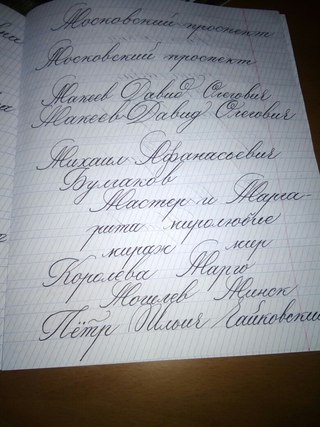 Московский проспект
Московский проспект
Макеев Давид Олегович
Макеев Давид Олегович
Михаил Афанасьевич
Булгаков
Мастер и Марга-
рита миролюбие
мираж мир
Королева Марго
Могилев Минск
Пётр Ильич Чайковский